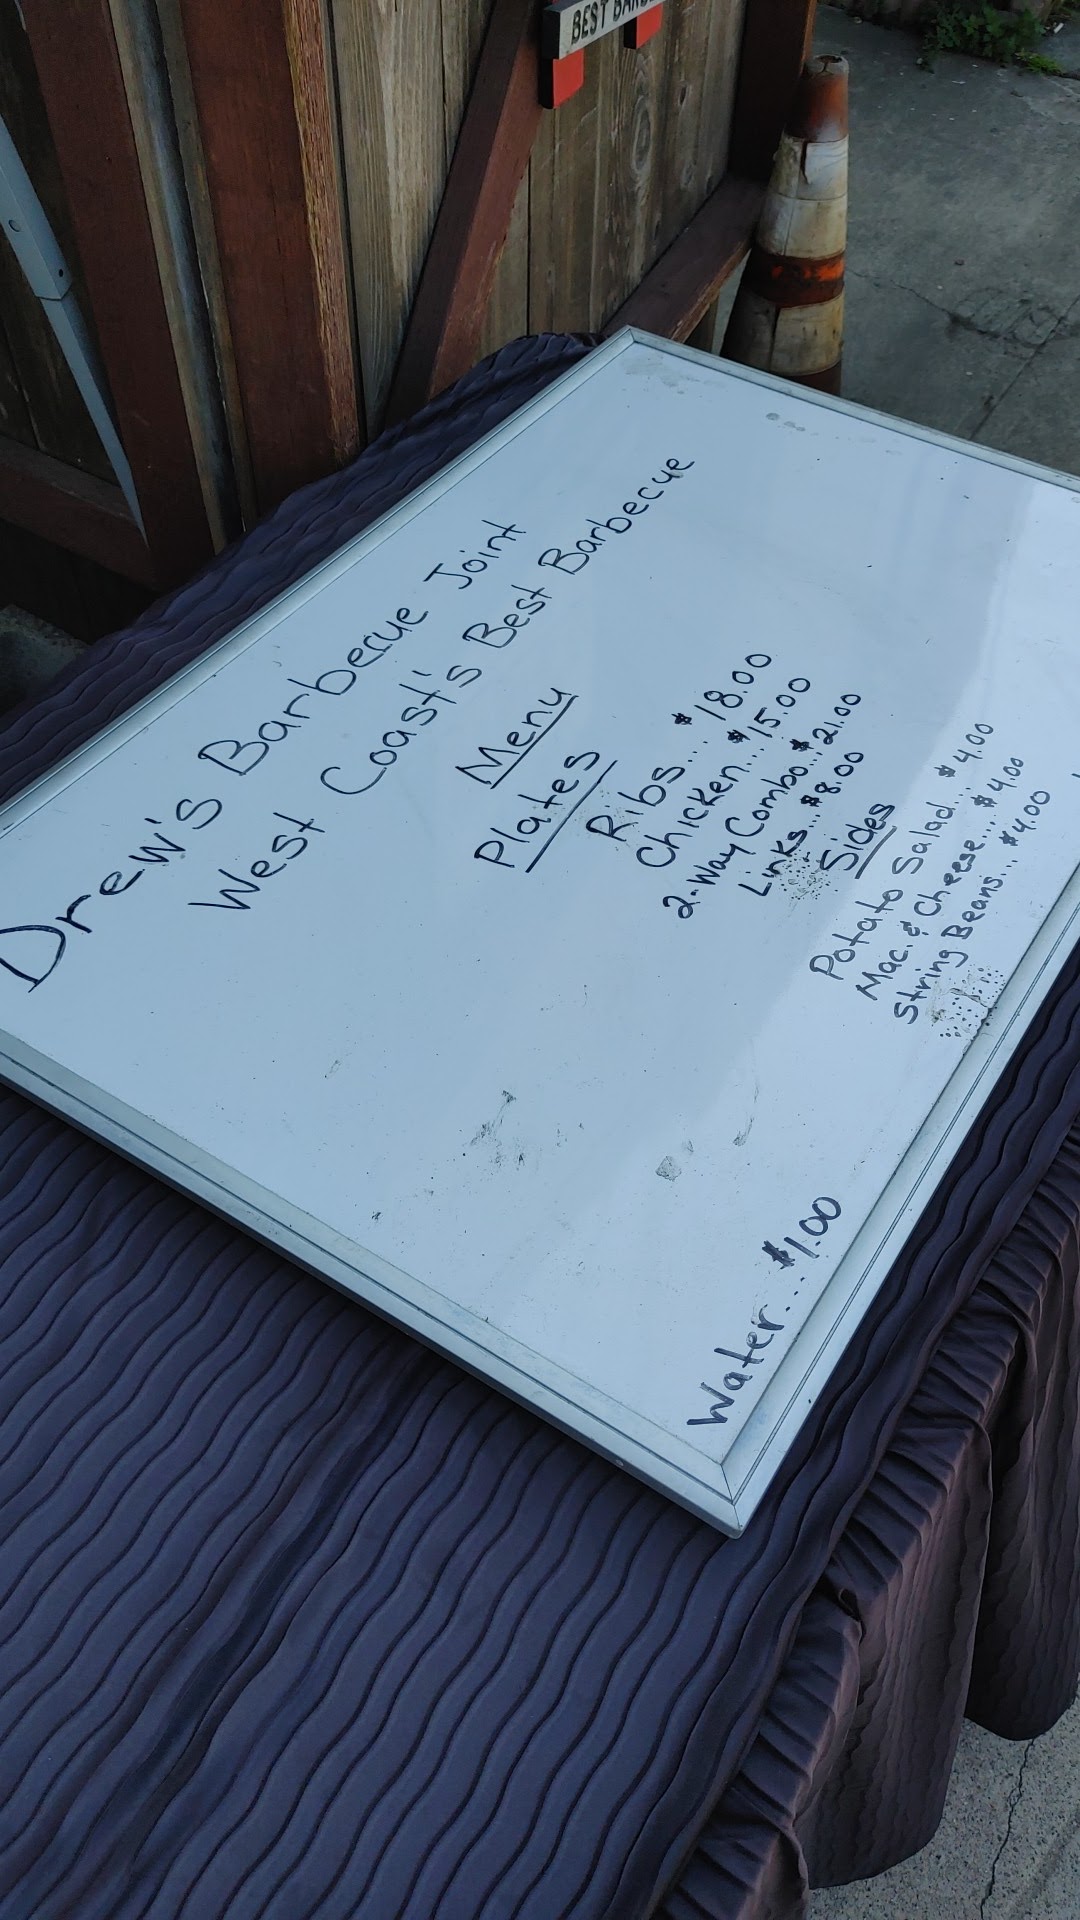 BEST BARBE
Drew's Barbecue Joint
West Coast's Best Barbecue
Menu
Plates
Ribs.... $18.00
Chicken... $15.00
2-Way Combo... $21.00
Links... $8.00
Sides
Potato Salad... $4.00
Mac. & Cheese... $4.00
String Beans... $4.00
Water... $1.00